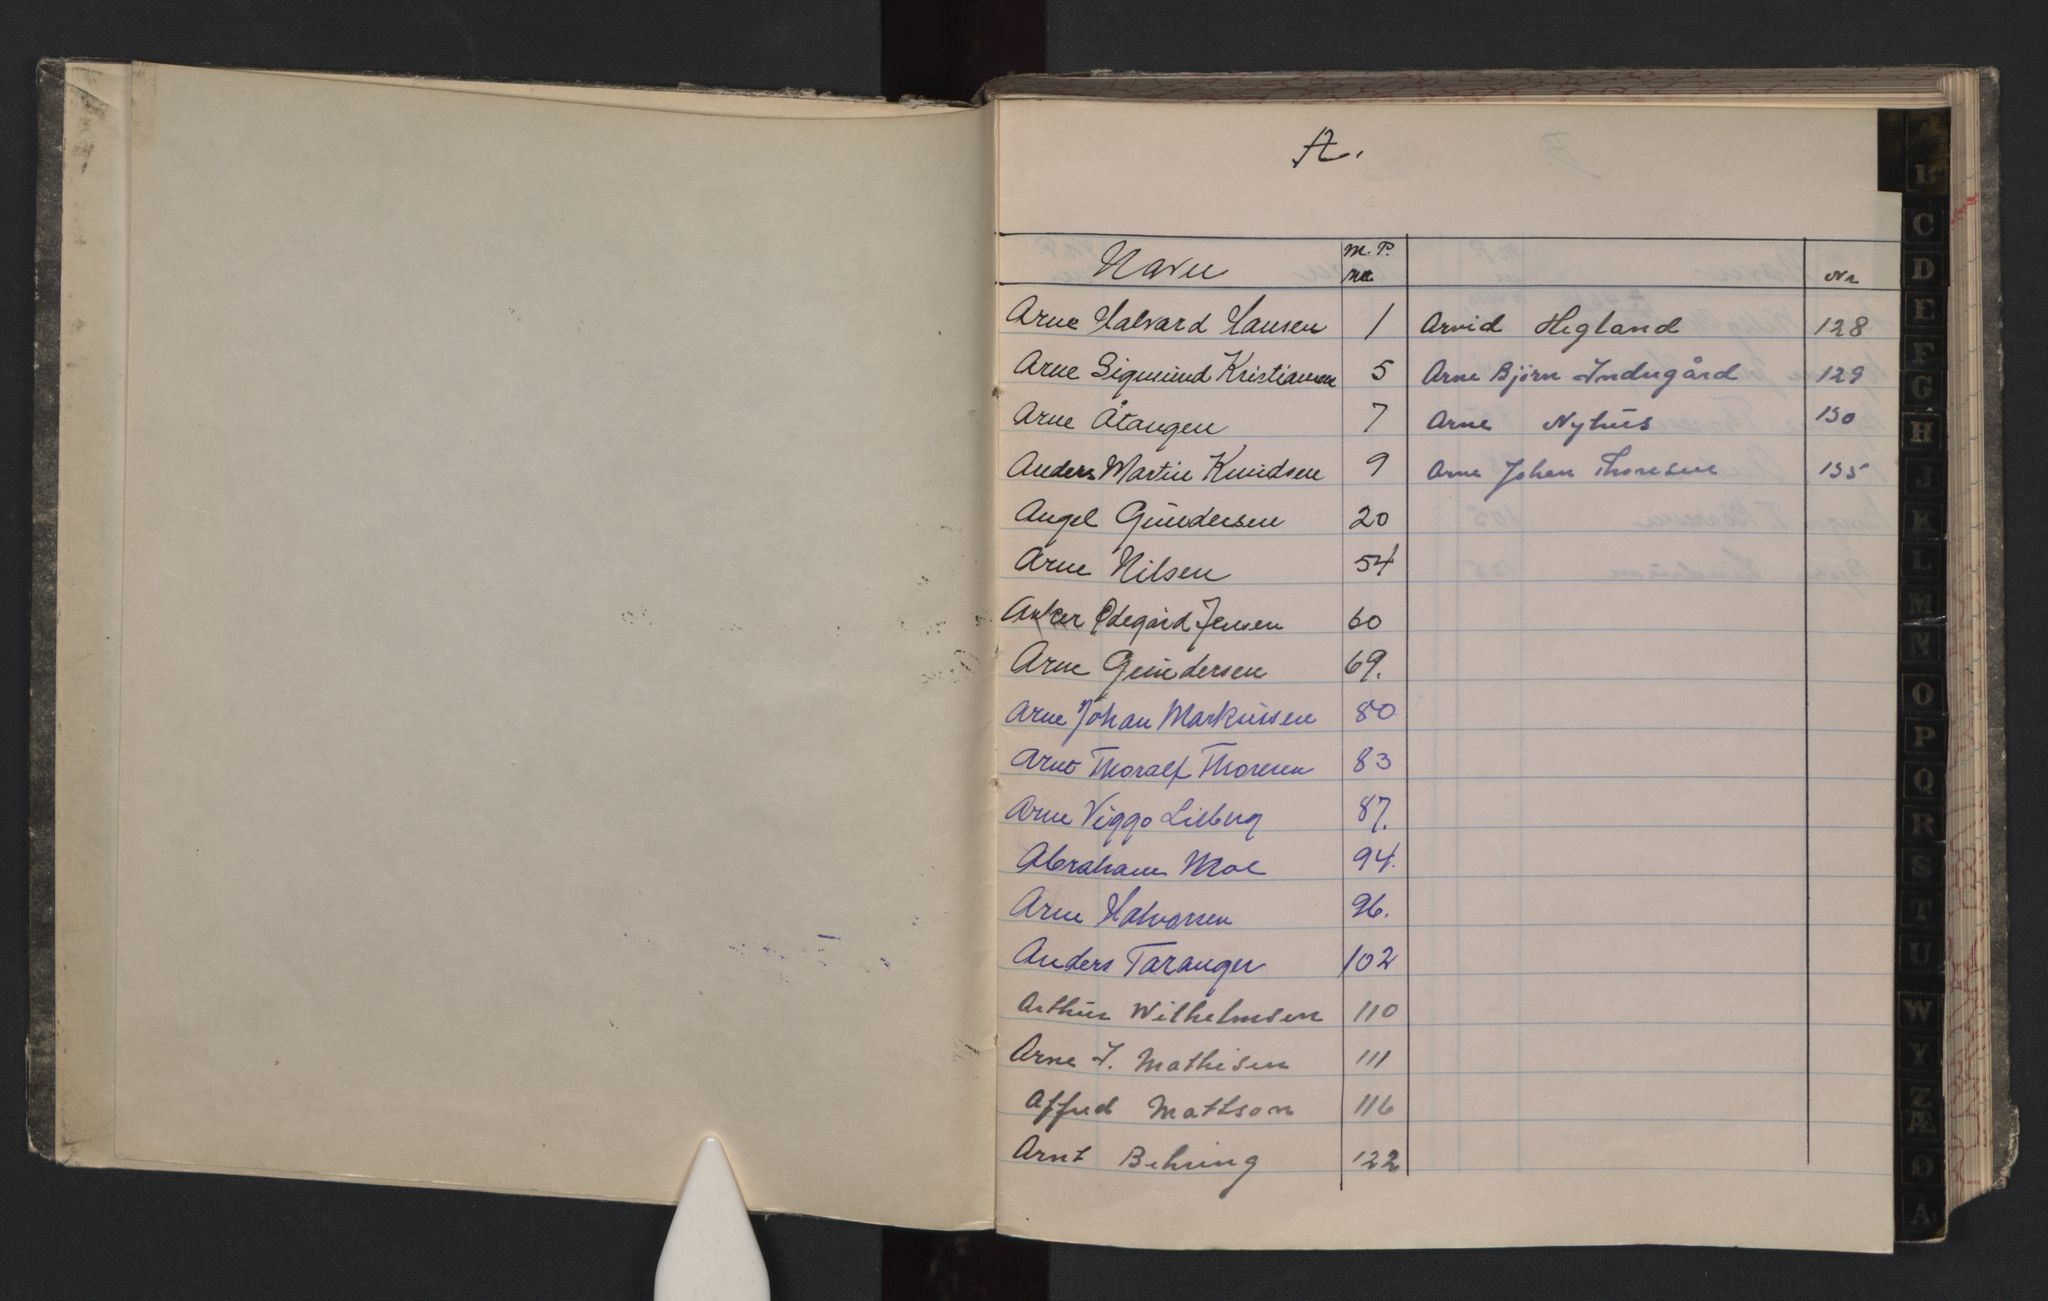 A.
Navn M.P. nr. Nr
Arne Halvard Hansen 1
Arne Sigmund Kristiansen 5
Arne Åtangen 7
Anders Martin Knudsen 9
Angel Gundersen 20
Arne Nilsen 54
Asker Ødegård Jensen 60
Arne Gundersen 69.
Arne Johan Markussen 80
Arne Thoralf Thoresen 83
Arne Viggo Lilberg 87.
Abraham Moe 94.
Arne Halvorsen 96.
Anders Taranger 102
Arthur Wilhelmsen 110
Arne I. Mathisen 111
Alfred Mattson 116
Arnt Behring 122
Arvid Hegland 128
Arne Bjørn Indregård 129
Arne Nyhus 130
Arne Johan Thoresen 135
A
B
C
D
E
F
G
H
J
K
L
M
N
O
P
Q
R
S
T
U
W
Y
Z
Æ
Ø
Å